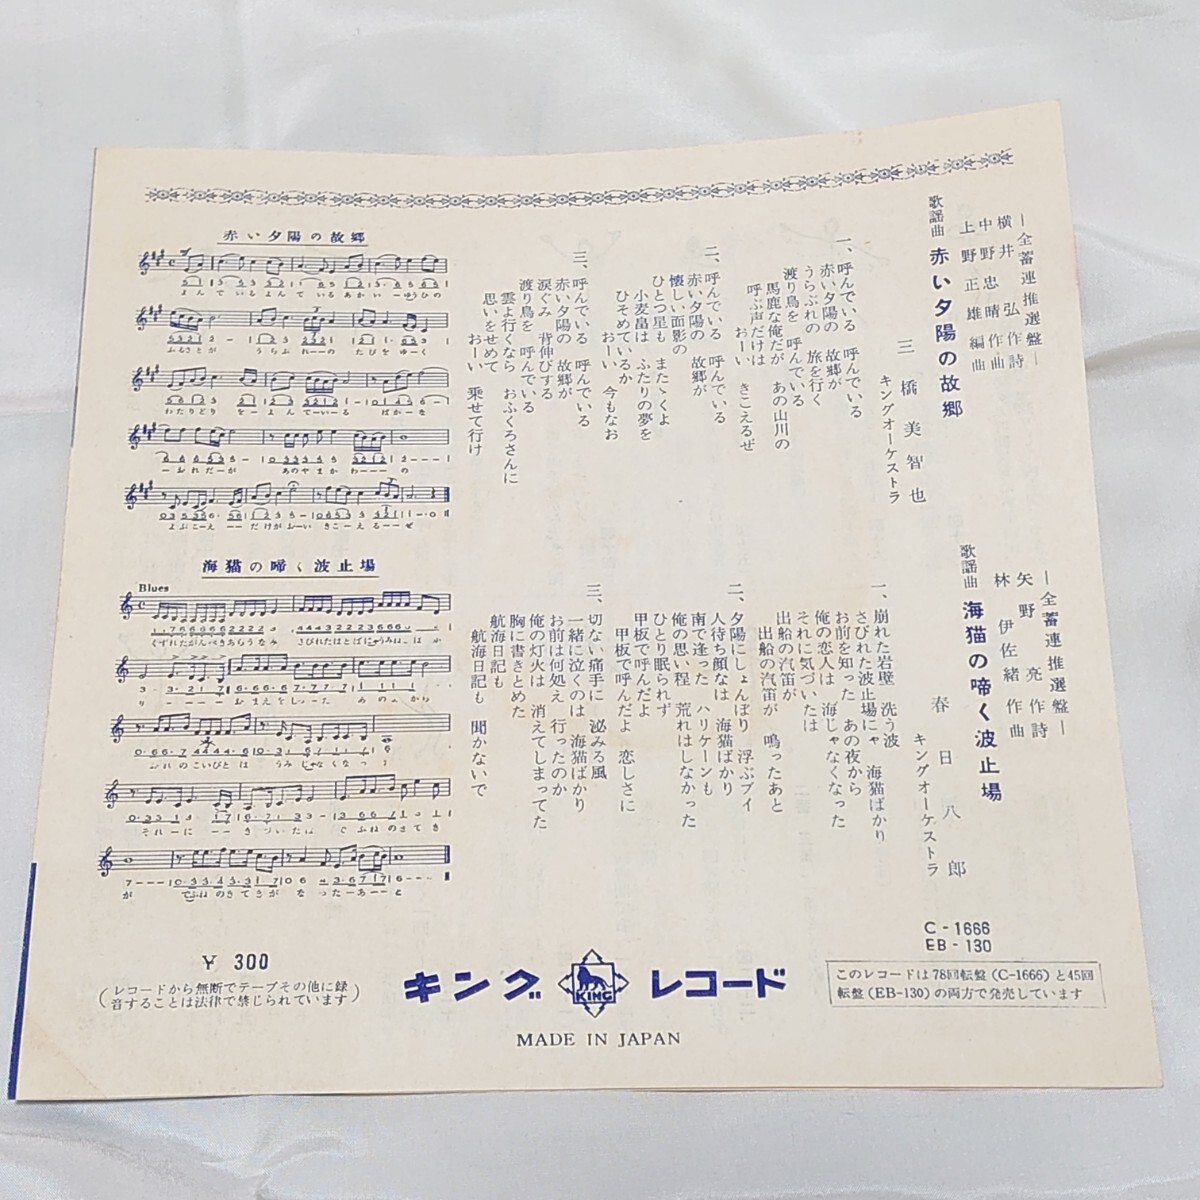 ―全蓄連推選盤―
横井弘作詩
中野忠晴作曲
上野正雄編曲
歌謡曲 赤い夕陽の故郷
三橋美智也
キングオーケストラ
一、呼んでいる 呼んでいる
赤い夕陽の 故郷が
うらぶれの 旅を行く
渡り鳥を 呼んでいる
馬鹿な俺だが あの山川の
呼ぶ声だけは きこえるぜ
おーい
二、呼んでいる 呼んでいる
赤い夕陽の 故郷が
懐しい面影の
ひとつ星も またゝくよ
小麦畠は ふたりの夢を
ひそめているか 今もなお
おーい
三、呼んでいる 呼んでいる
赤い夕陽の 故郷が
涙ぐみ 背伸びする
渡り鳥を 呼んでいる
雲よ行くなら おふくろさんに
思いをせめて 乗せて行け
おーい
―全蓄連推選盤―
矢野亮作詩
林伊佐緒作曲
歌謡曲 海猫の啼く波止場
春日八郎
キングオーケストラ
一、崩れた岩壁 洗う波
さびれた波止場にゃ 海猫ばかり
お前を知った あの夜から
俺の恋人は 海じゃなくなった
それに気づいたは
出船の汽笛が
出船の汽笛が 鳴ったあと
二、夕陽にしょんぼり 浮ぶブイ
人待ち顔なは 海猫ばかり
南で逢った ハリケーンも
俺の思い程 荒れはしなかった
ひとり眠られず
甲板で呼んだよ
甲板で呼んだよ 恋しさに
三、切ない痛手に 泌みる風
一緒に泣くのは 海猫ばかり
お前は何処え 行ったのか
俺の灯火は 消えてしまってた
胸に書きとめた
航海日記も
航海日記も 聞かないで
赤い夕陽の故郷
よんでいるよんでいるあかいーゆうひの
ふるさとが うらぶれーーの たびをゆーく
わたりどり をーよんでーいーる ばかーな
ーおれだーが あのやまかわーーーの
よぶこーえーーだけがおーい きこーえるーーぜ
海猫の啼く波止場
Blues
くずれたがんぺきあらうなみ さびれたはとばにゃうみねこばか
りーーーー おまえをしーった あのよから
おれのこいびとは うみじゃなくなった
それーにーーきづいたは でふねのきてき
が でふねのきてきが なったーあーと
C-1666
EB-130
¥ 300
(レコードから無断でテープその他に録
音することは法律で禁じられています)
キング KING レコード
このレコードは78回転盤(C-1666)と45回
転盤(EB-130)の両方で発売しています
MADE IN JAPAN